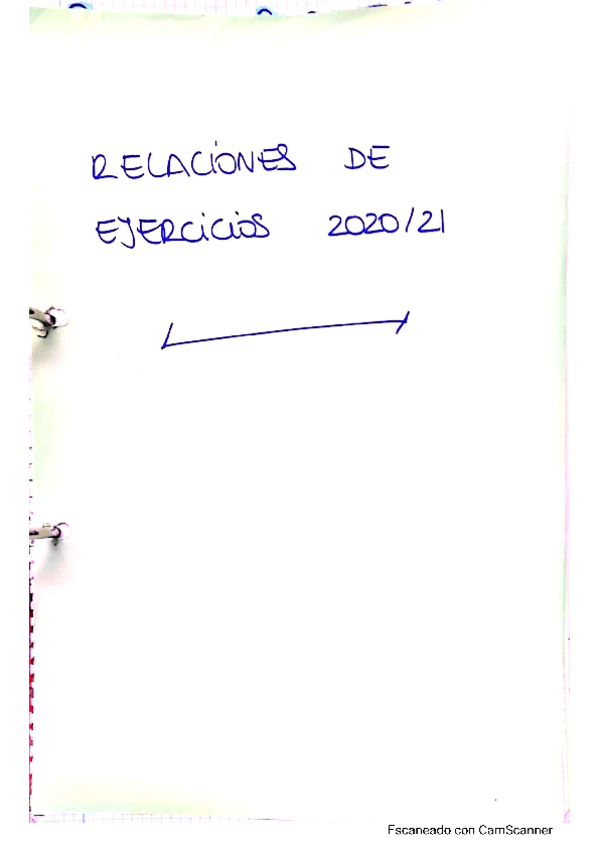 RELACIONES DE
EJERCICIOS 2020/21
Escaneado con CamScanner